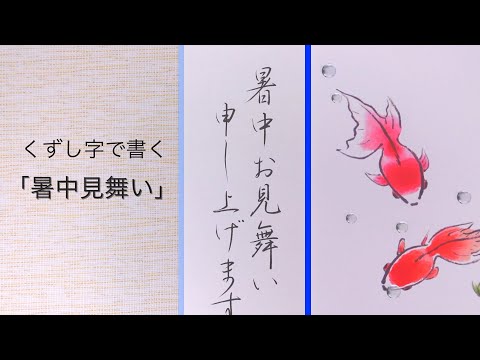 くずし字で書く
「暑中見舞い」
暑中お見舞い
申し上げます